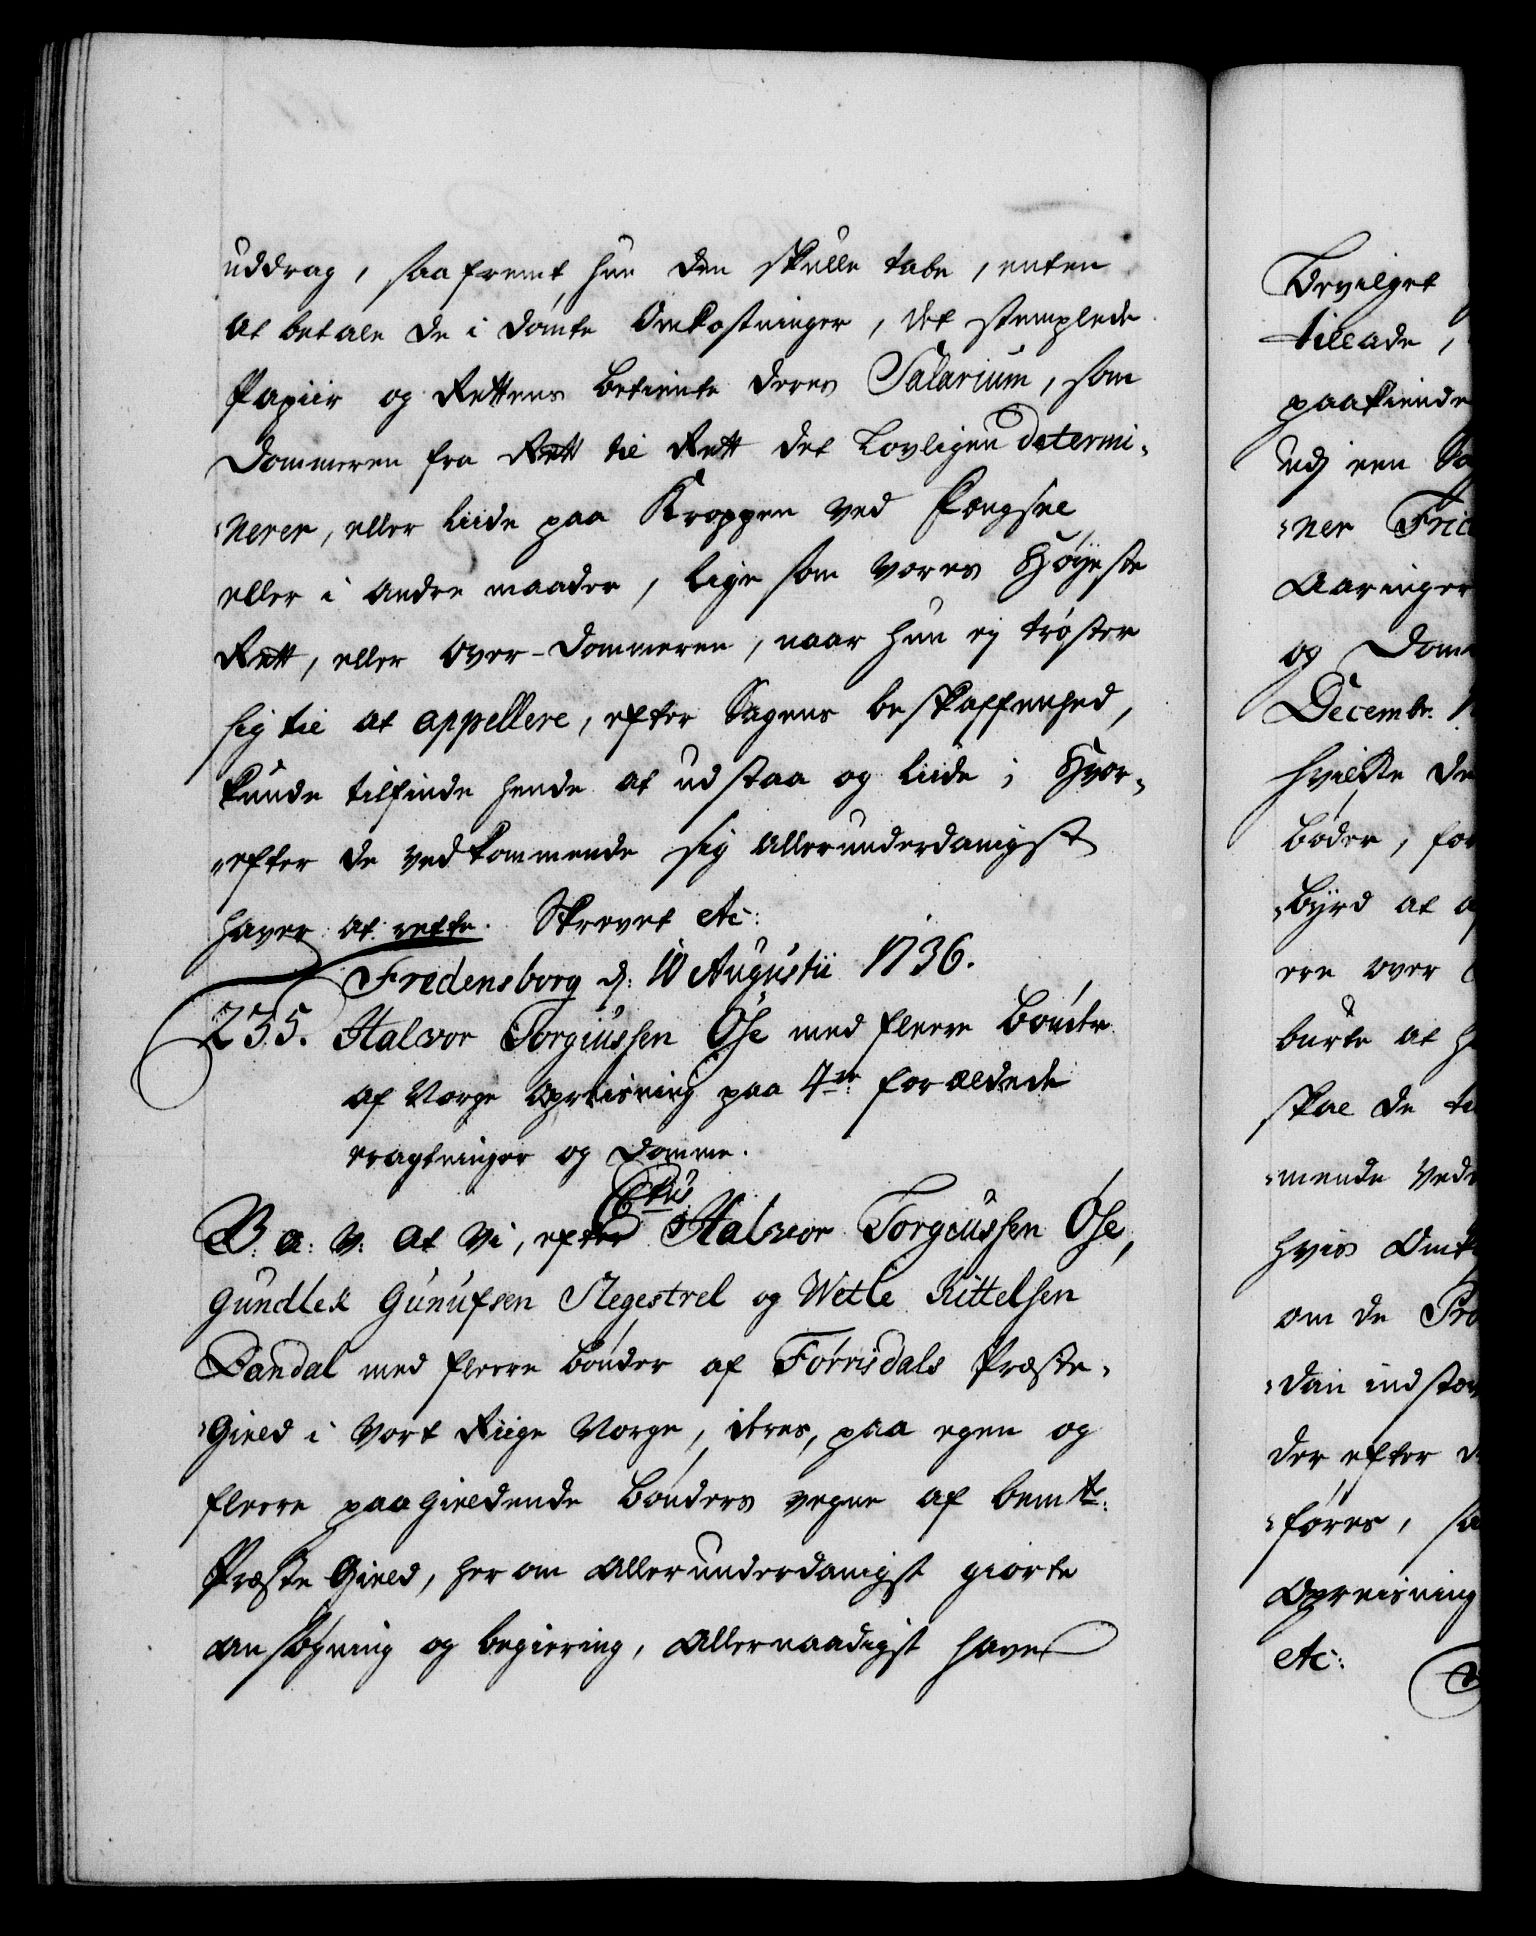 uddrag, saafremt hun den skulle tabe, enten
at betale de i dømte Omkostninger, det stemplede
Papiir og Rettens betiente deres Salarium, som
Dommeren fra Rett til Rett det Lovligen determi-
nerer, eller liide paa Kroppen ved Fængsel
eller i andre maader, lige som Vores Høyeste
Rett, eller Over-Dommeren, naar hun ej trøster
sig til at appellere, efter Sagens beskaffenhed,
kunde tilfinde hende at udstaa og liide; Hvor-
efter de vedkommende sig allerunderdanigst
haver at rette. Skrevet etc:
Fredensborg d: 10 Augustii 1736.
235. Halvor Torgiussen Øse med fleere Bønder
af Norge Opreisning paa 4re forældede
eragtninger og Domme.
B: a: V: at Vi, efter Halvor Torgiussen Øse,
Gundlek Gunufsen Slegestrel og Wetle Kittelsen
Dandal med fleere bønder af Førrisdals Præste-
Gield i Vort Riige Norge, deres, paa egen og
fleere paagieldende bønders vegne af bemte:
Præste Gield, her om allerunderdanigst giorte
ansøgning og begiering, allernaadigst haver
Bevilget
tillade,
paakiende
udj een
ner
Aaringer
og
Decembr:
hvilke
bøder, for
Byrd at
ere over
burte at
skal de
mende
hvis
om de
dan
der efter
føres,
Opreisning
etc: